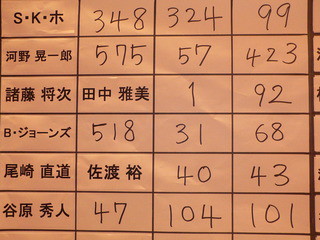 S・K・ホ 348 324 99
河野 晃一郎 575 57 423
諸藤 将次 田中 雅美 1 92
B・ジョーンズ 518 31 68
尾崎 直道 佐渡 裕 40 43
谷原 秀人 47 104 101